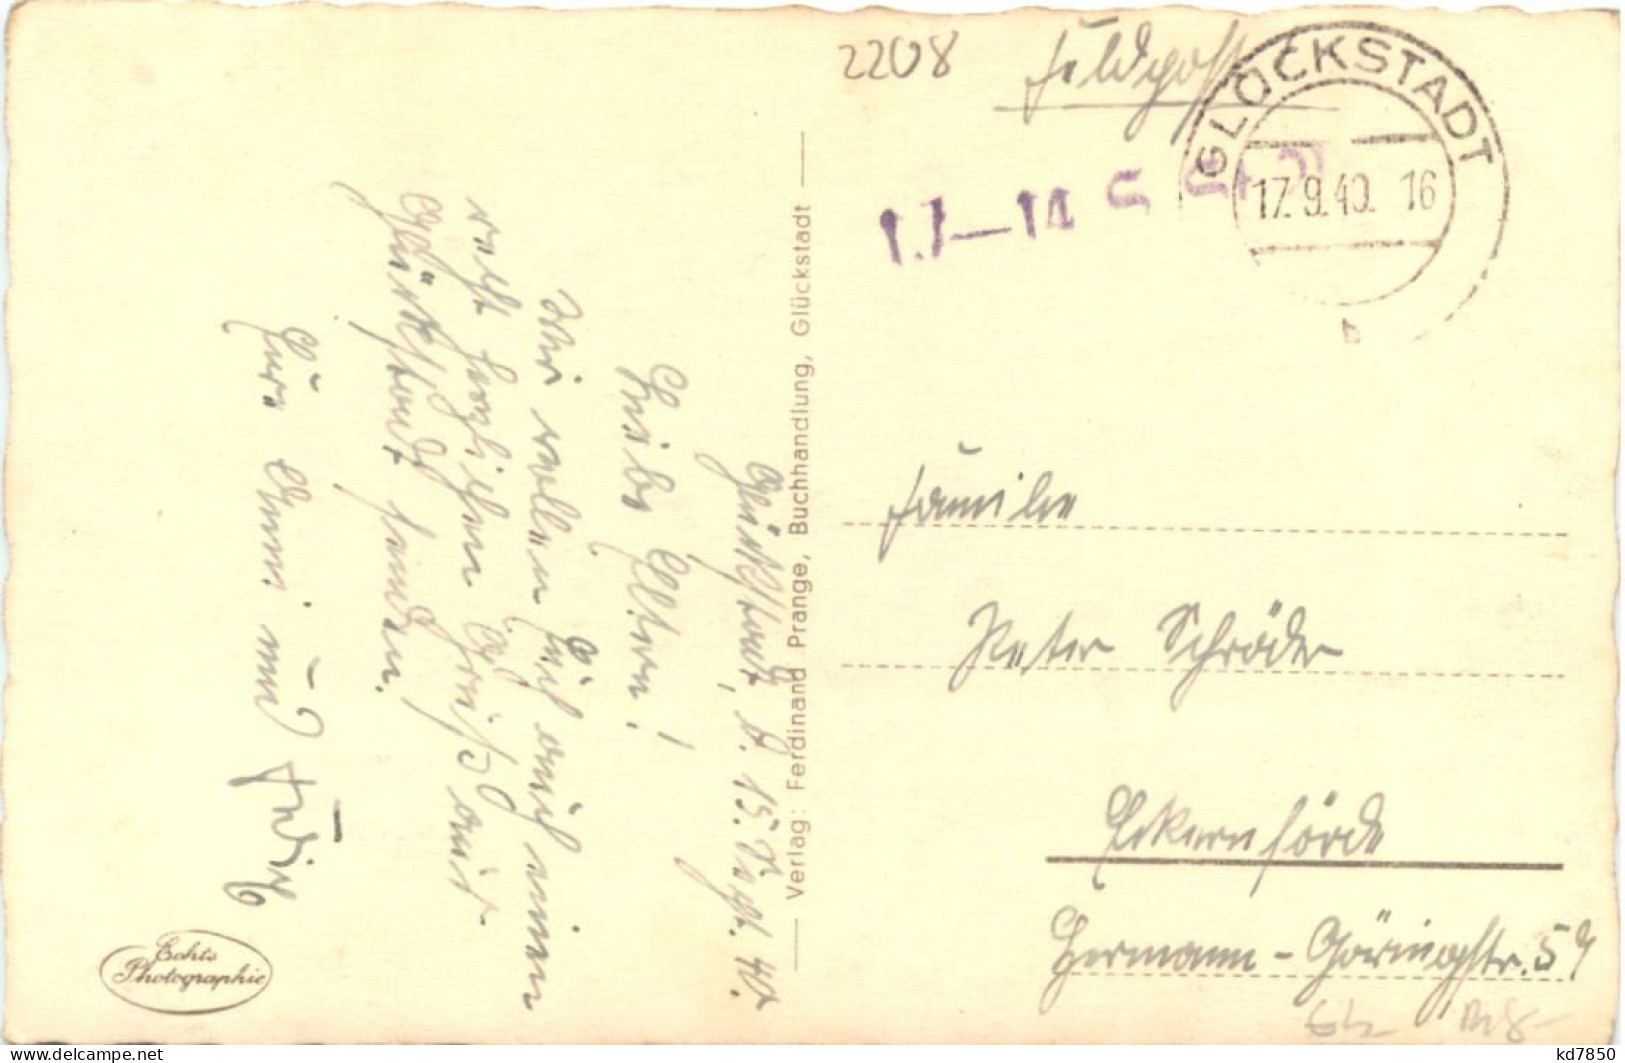 2208
Feldpost
GLÜCKSTADT
17.9.40. 16
Glückstadt, d. 15. Sept. 40.
Liebe Eltern!
Wir wollen Euch auch einen
recht herzlichen Gruß aus
Glückstadt senden.
Eure Anni und
Verlag: Ferdinand Prange, Buchhandlung, Glückstadt
Familie
Peter Schröder
Eckernförde
Hermann-Göringstr. 57
Echte
Photographie
kd7850